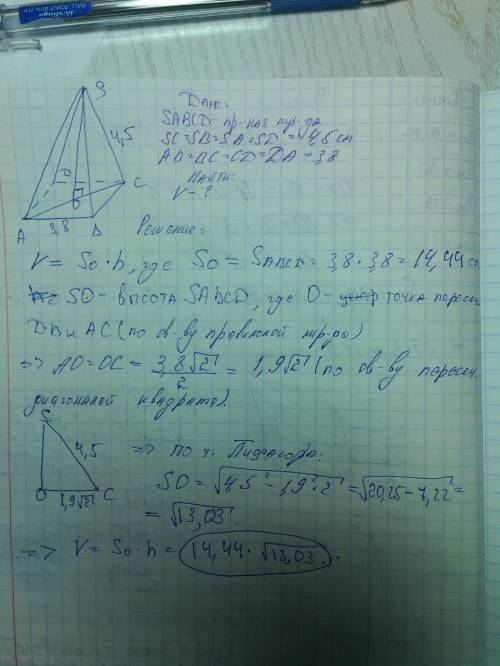 Berlingo
BALL POINT PEN
S
4,5
D
C
O
A
3,8
B
Дано:
SABCD - пр-ная пир-да
SC=SB=SA=SD=4,5 см
AB=BC=CD=DA=3,8
Найти:
V - ?
Решение:
V = So·h, где So = SABCD = 3,8·3,8 = 14,44 см
SO - высота SABCD, где O - точка пересеч.
BD и AC (по св-ву правильной пир-ды)
=> AO=OC = 3,8√2/2 = 1,9√2 (по св-ву пересеч.
диагоналей квадрата).
S
4,5
O
1,9√2
C
=> по т. Пифагора:
SO = √4,5²-1,9²·2 = √20,25-7,22 =
= √13,03.
=> V = So·h = 14,44·√13,03.